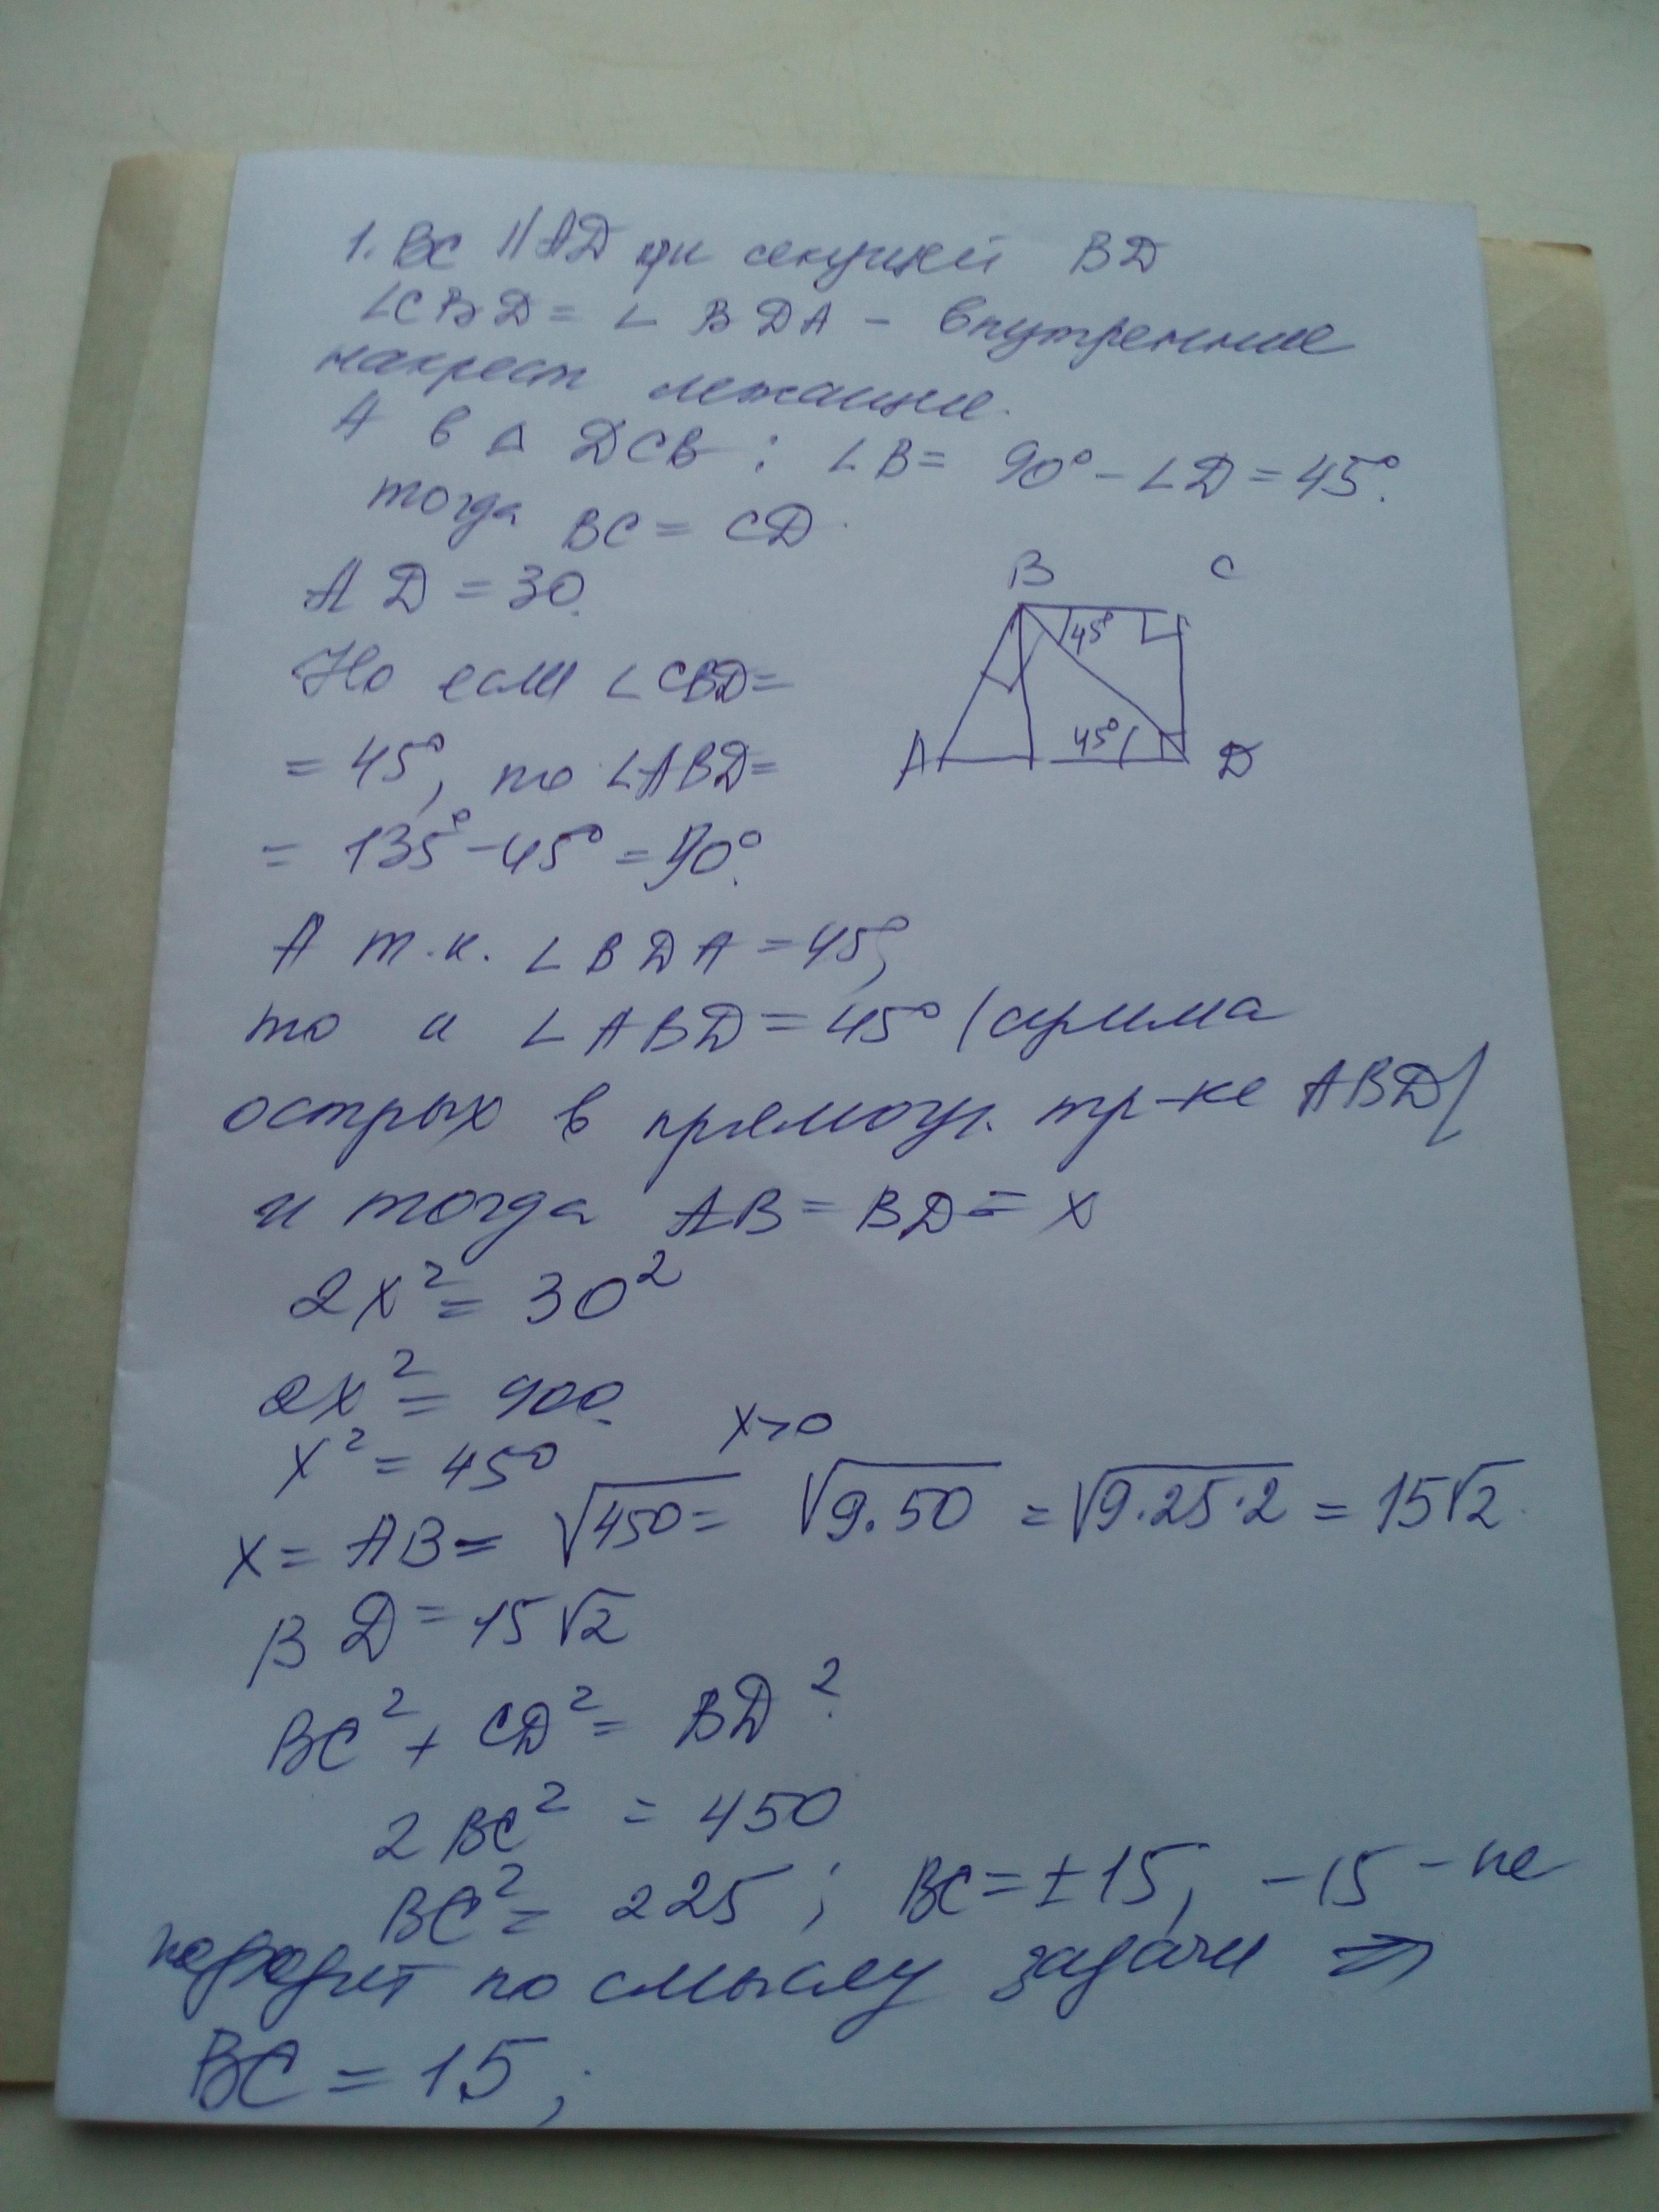 1. BC || AD при секущей BD
∠CBD = ∠ BDA – внутренние
накрест лежащие.
А в △ DCB : ∠B = 90° – ∠D = 45°.
тогда BC = CD.
AD = 30.
Но если ∠CBD =
= 45°, то ∠ABD =
= 135° – 45° = 90°.
B C
45°
A 45° D
А т.к. ∠ BDA = 45°,
то и ∠ ABD = 45° (сумма
острых в прямоуг. тр-ке ABD)
и тогда AB = BD = x
2x² = 30²
2x² = 900.
x² = 450 x>0
x = AB = √450 = √9·50 = √9·25·2 = 15√2.
BD = 15√2
BC² + CD² = BD².
2BC² = 450
BC² = 225 ; BC = ±15, –15 – не
подходит по смыслу задачи ⇒
BC = 15 ;